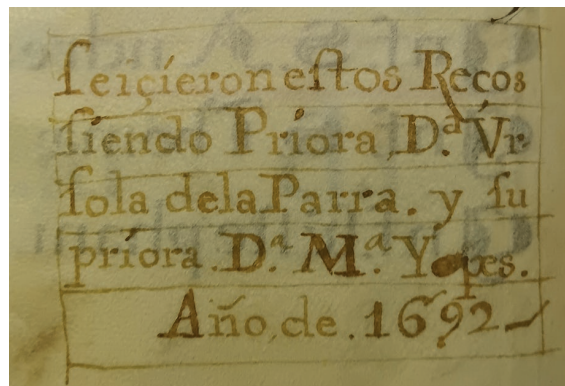 ſeiçieron eſtos Recos
ſiendo Priora, D.ª Vr
ſola dela Parra. y ſu
priora. D.ª M.ª Yepes.
Año, de. 1692